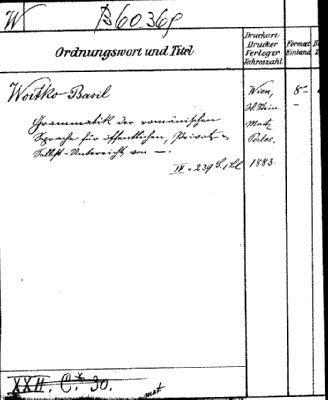 W B60369
Ordnungswort und Titel
Druckort
Drucker
Verleger
Jahreszahl
Format
Einband
Woitko Basil
Grammatik der romänischen
Sprache für öffentlichen, Privat- &
Selbst-Unterricht von —.
IV + 239 S.,
Wien,
1883
8°
—
XXII. C. 30.